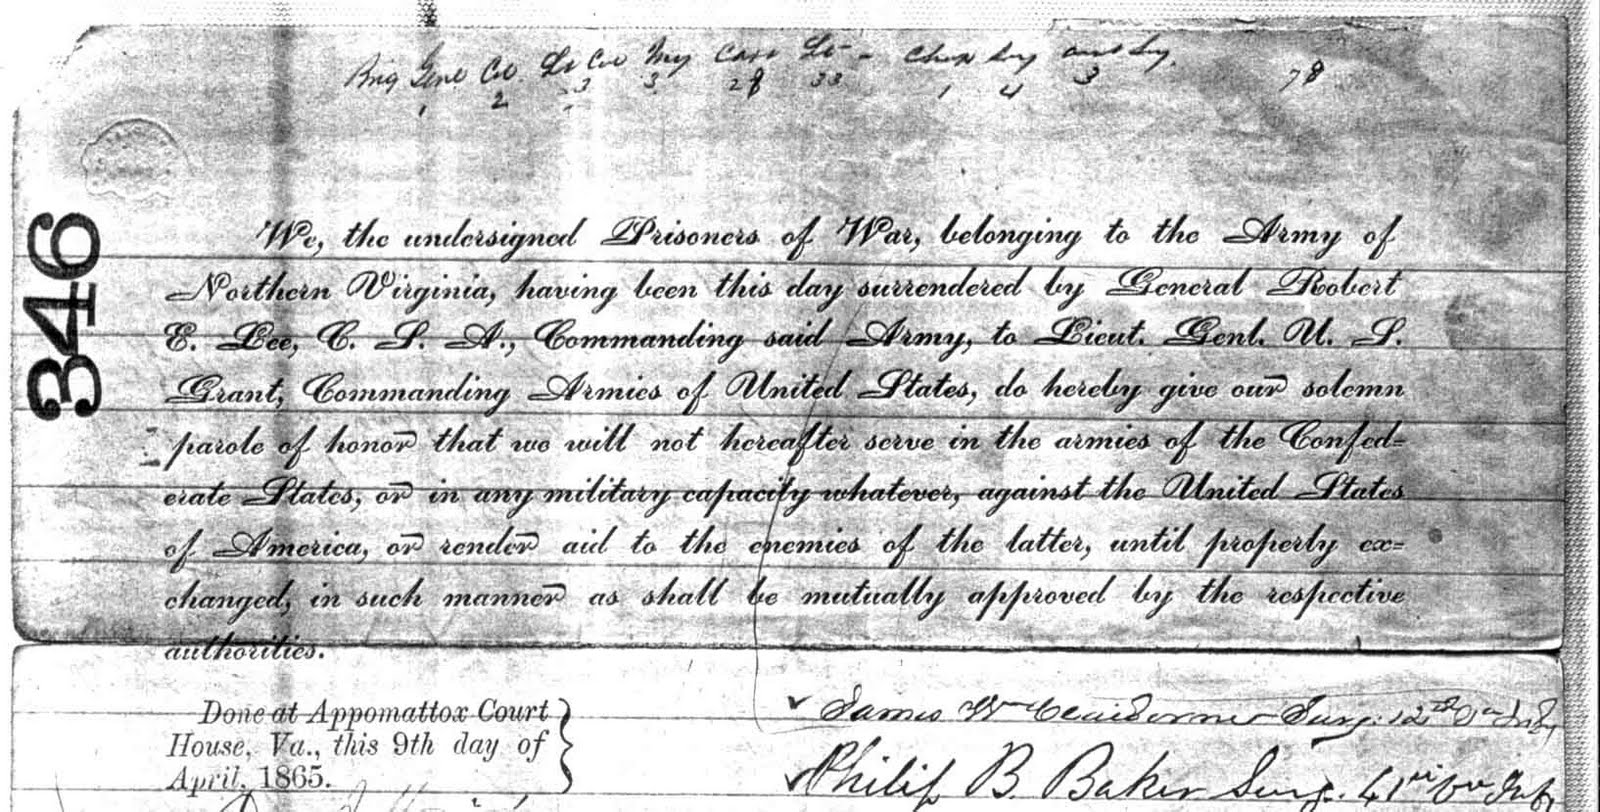 Brig Genl Col. Lt Col Maj Capt Lt - Chap Surg asst Surg.
1 2 3 3 28 33 1 4 3 78
346
We, the undersigned Prisoners of War, belonging to the Army of
Northern Virginia, having been this day surrendered by General Robert
E. Lee, C. S. A., Commanding said Army, to Lieut. Genl. U. S.
Grant, Commanding Armies of United States, do hereby give our solemn
parole of honor that we will not hereafter serve in the armies of the Confed=
erate States, or in any military capacity whatever, against the United States
of America, or render aid to the enemies of the latter, until properly ex=
changed, in such manner as shall be mutually approved by the respective
authorities.
Done at Appomattox Court
House, Va., this 9th day of
April, 1865.
James Wm Claiborne Surg. 12th Va Inf
Philip B. Baker Surg. 41st Va Inf